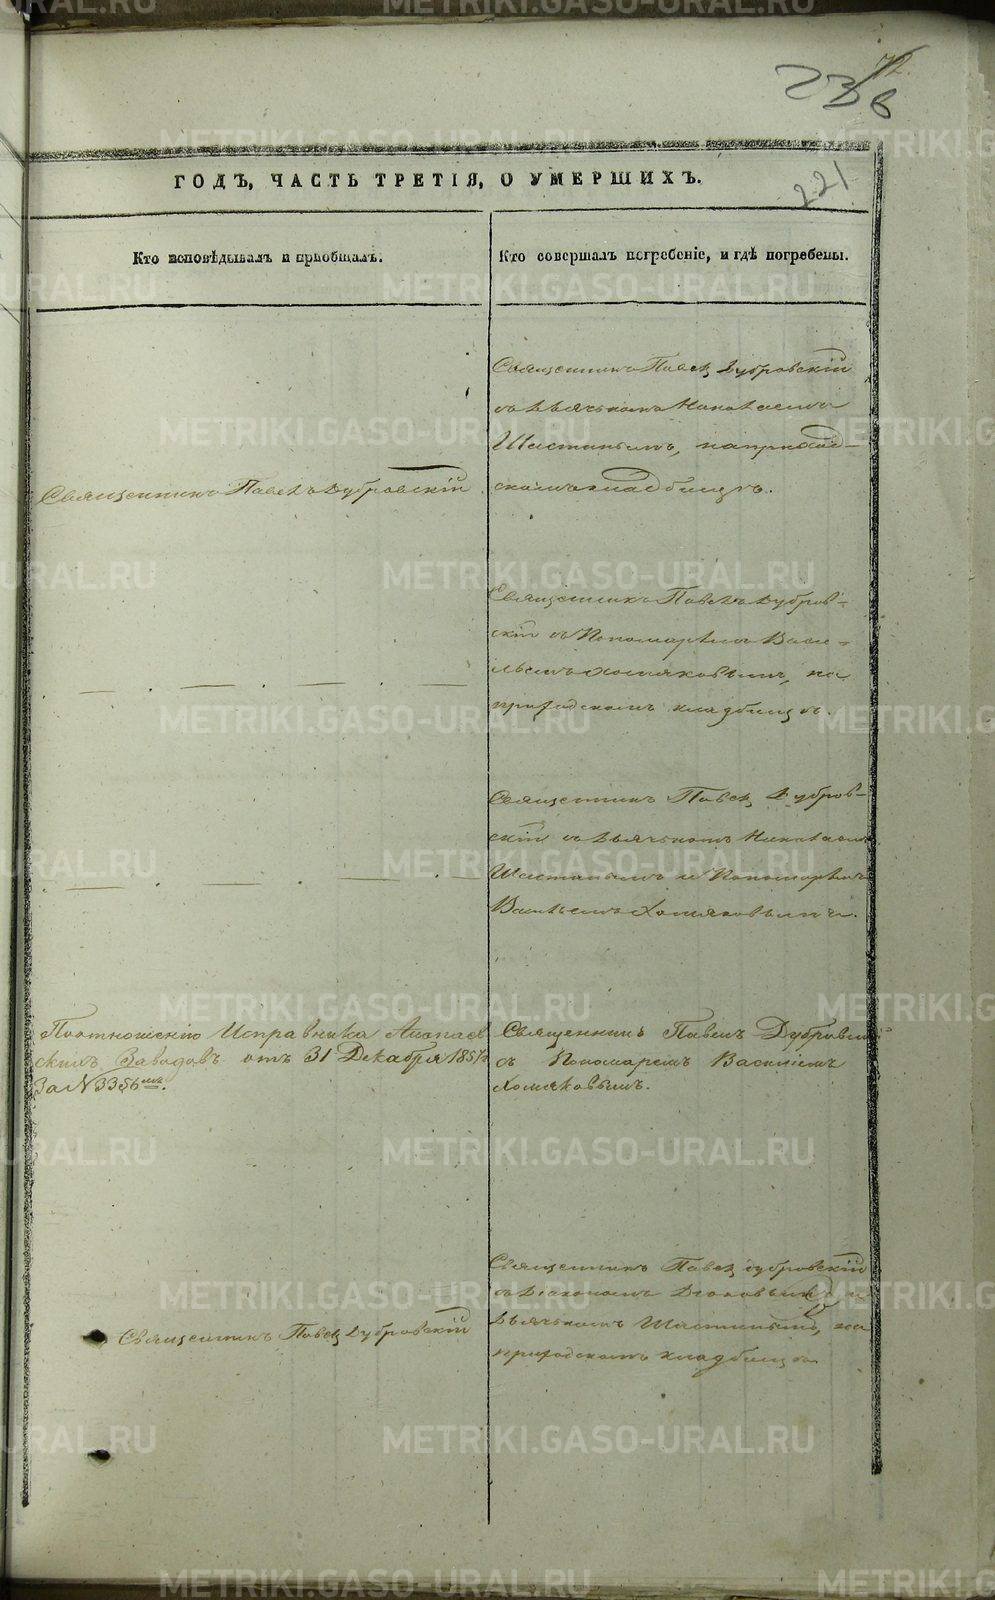 72.
23в
221
ГОДЪ, ЧАСТЬ ТРЕТІЯ, О УМЕРШИХЪ.
Кто исповѣдывалъ и пріобщалъ.
Кто совершалъ погребеніе, и гдѣ погребены.
Священникъ Павелъ Дубровскій
Священникъ Павел Дубровскій
съ Дьячкомъ Николаемъ
Шестинымъ, на приход-
скомъ кладбищѣ.
Священникъ Павелъ Дубров-
скій съ Пономаремъ Васи-
льемъ Хомяковымъ, на
приходскомъ кладбищѣ.
Священникъ Павел Дубров-
скій съ Дьячкомъ Николаемъ
Шестинымъ и Пономаремъ
Васильемъ Хомяковымъ.
По отношенію Исправника Алапаев
скихъ Заводовъ отъ 31 Декабря 1857
За N 3356 мъ.
Священникъ Павелъ Дубровскій
съ Пономаремъ Василіемъ
Хомяковымъ.
Священникъ Павел Дубровскій
Священникъ Павел Дубровскій
съ Діакономъ и
Дьячкомъ Шестинымъ, на
приходскомъ кладбищѣ
METRIKI.GASO-URAL.RU